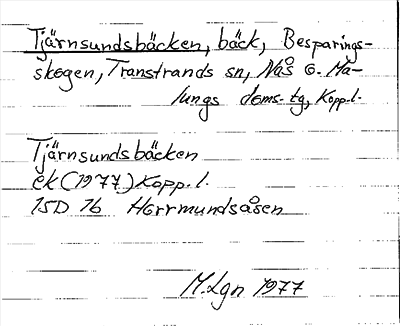 Tjärnsundsbäcken, bäck, Besparings-
skogen, Transtrands sn, Nås o. Ma-
lungs doms. tg, Kopp.l.
Tjärnsundsbäcken
ek (1977) Kopp.l.
15D 7b Horrmundsåsen
M.Lgn 1977